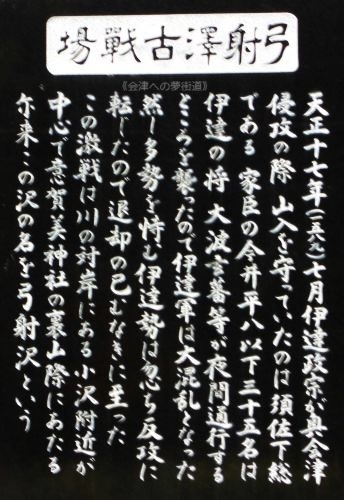 弓射澤古戰場
《会津への夢街道》
天正十七年(一五八九)七月伊達政宗が奥会津
侵攻の際 山入を守っていたのは須佐下総
である 家臣の今井平八以下三十五名は
伊達の将 大波玄蕃等が夜間通行する
ところを襲ったので伊達軍は大混乱となった
然し多勢を恃む伊達勢は忽ち反攻に
転じたので退却の已むなきに至った
この激戦は川の対岸にある小沢附近が
中心で意賀美神社の裏山際にあたる
尓来この沢の名を弓射沢という